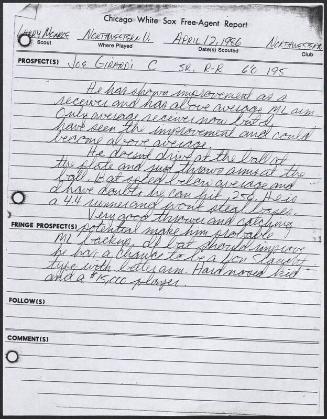 Chicago White Sox Free-Agent Report
Larry Monroe Northwestern U. April 12, 1986 Northwestern
Scout Where Played Date(s) Scouted Club
PROSPECT(S) Joe Girardi C SR. R-R 6'0 195
He has shown improvement as a
receiver and has above average ML arm.
Only average receiver now but I
have seen the improvement and could
become above average.
He doesn't drive at the ball at
the plate and just throws arms at the
ball. Bat speed below average and
I have doubts he can hit .250. He is
a 4.4 runner and won't steal bases.
Very good thrower and catching
FRINGE PROSPECT(S) potential make him probable
ML backup. If bat should improve
he has a chance to be a Don Slaught
type with better arm. Hard nosed kid
and a $15,000 player.
FOLLOW(S)
COMMENT(S)